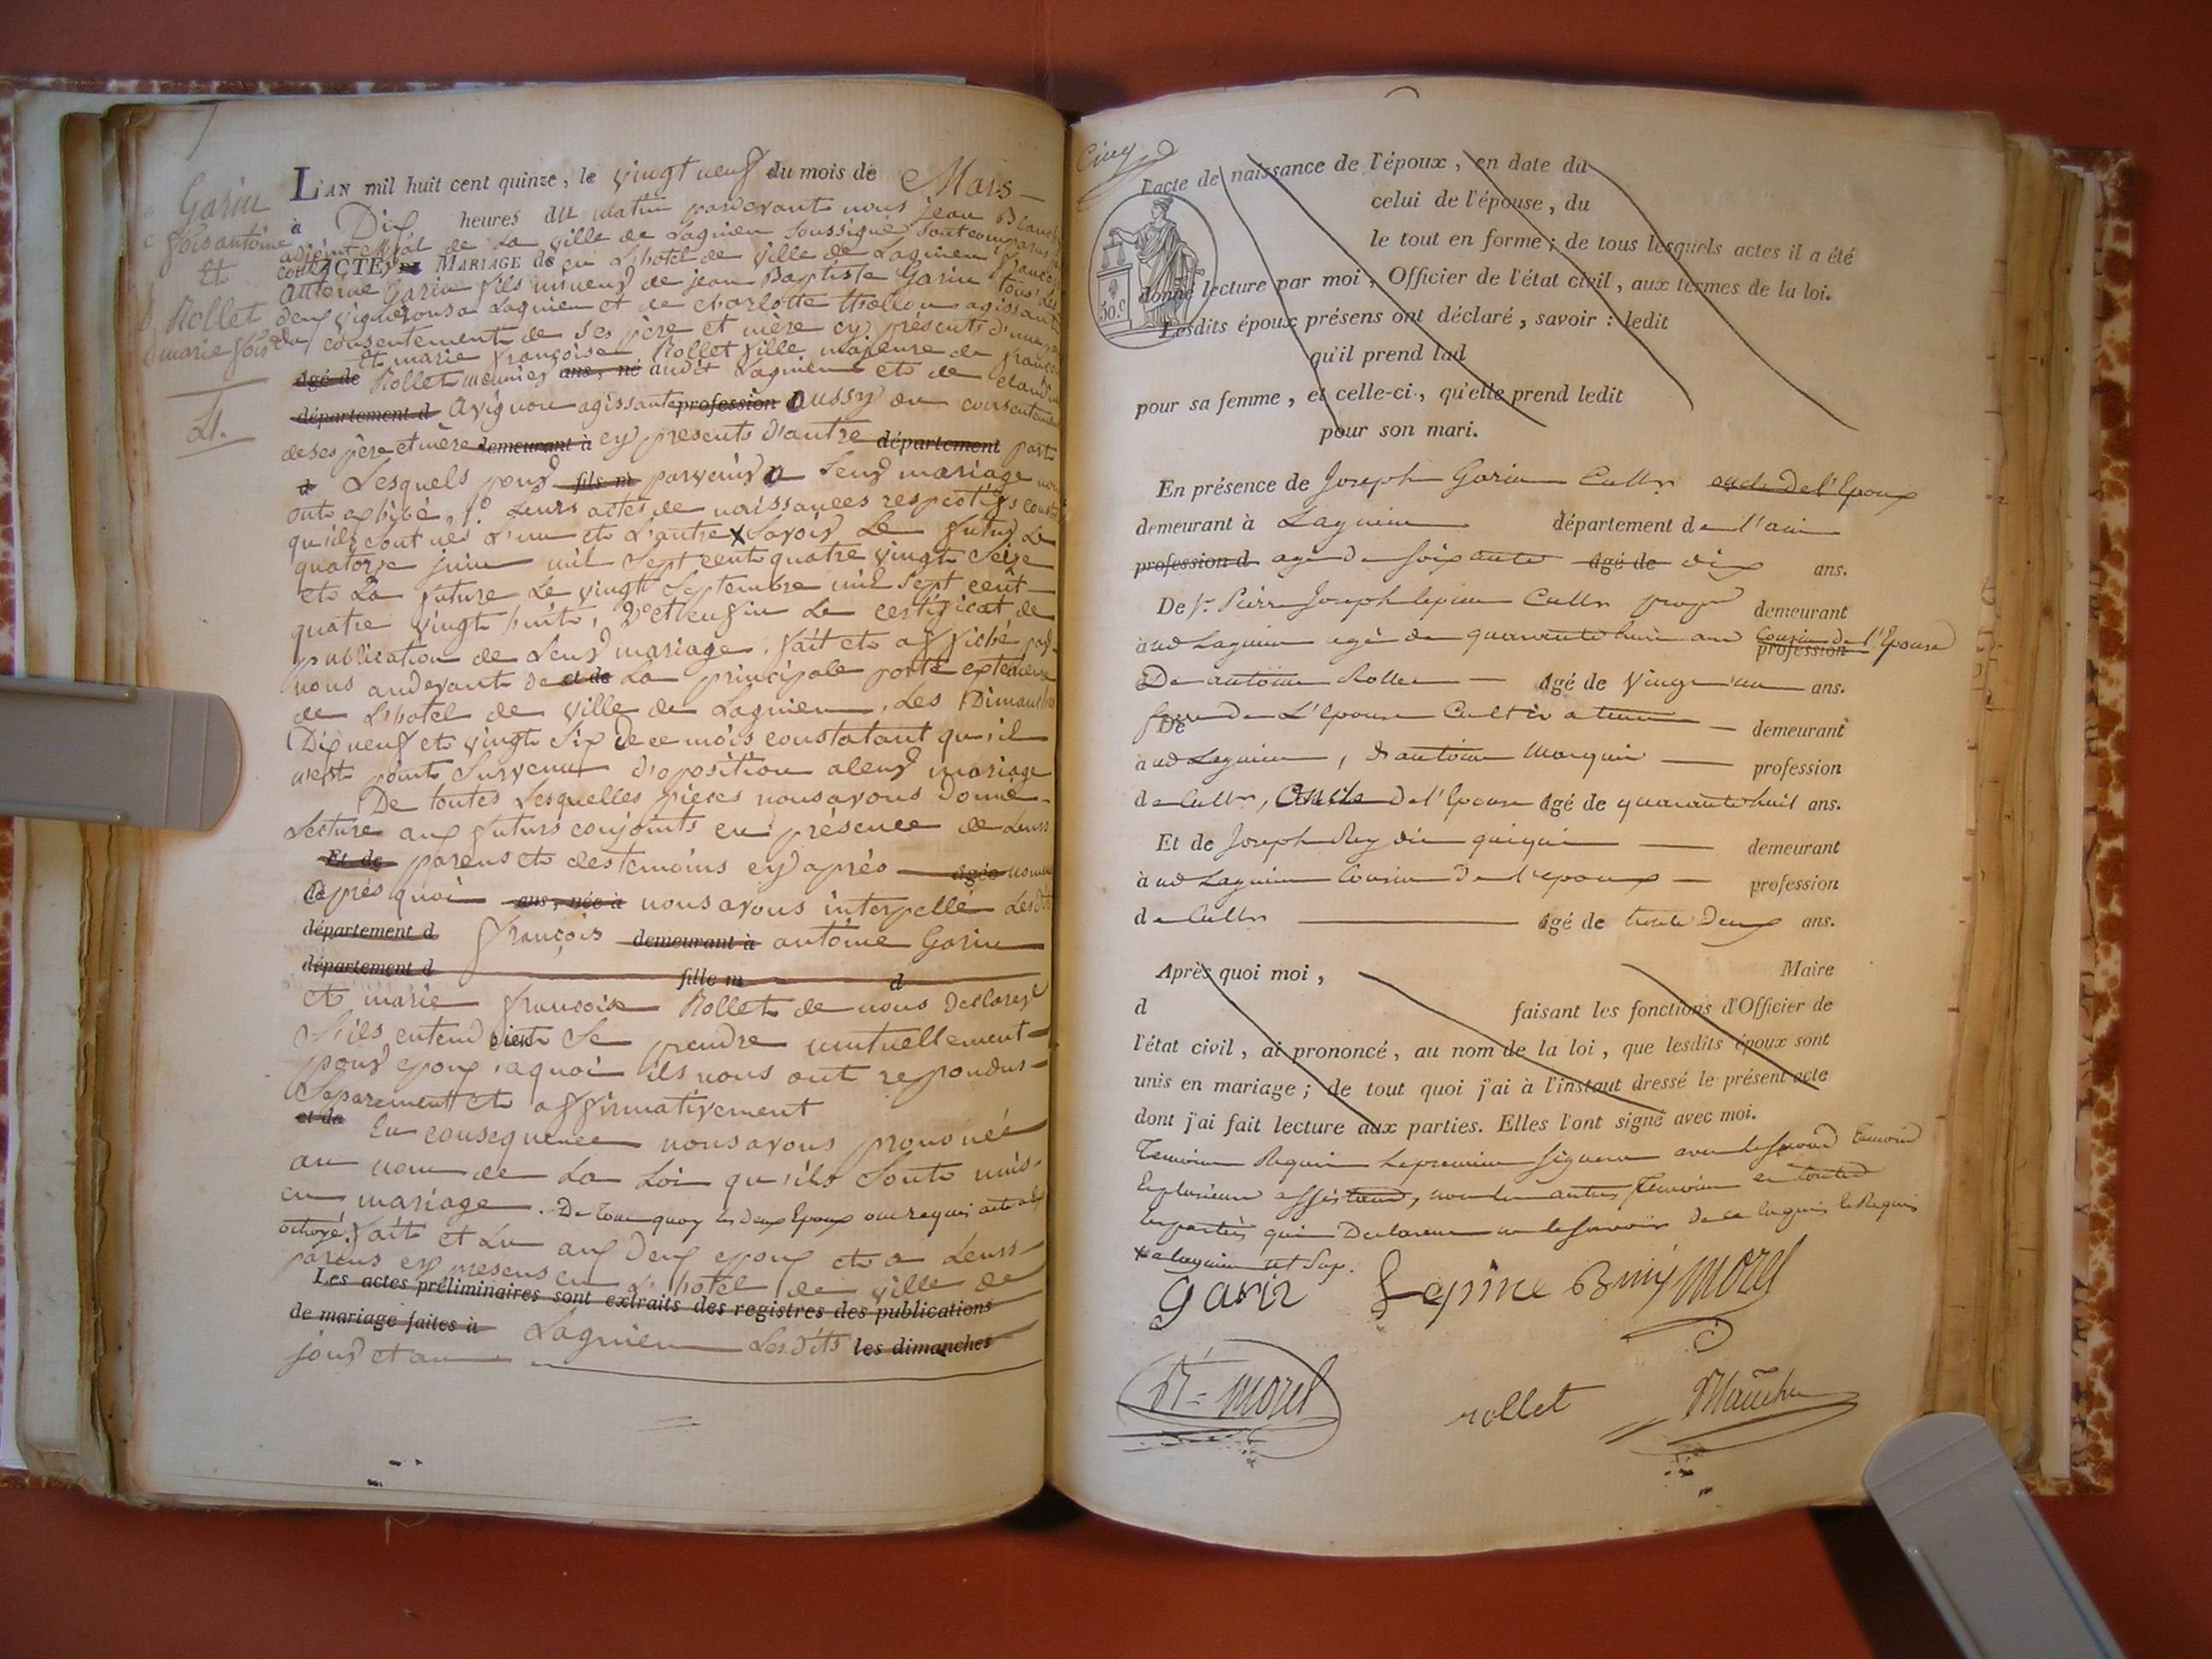 Garin
fois antoine
Et
Rollet
marie foise
L'AN mil huit cent quinze, le vingt neuf du mois de Mars
à Dix heures du matin pardevant nous jean Blanch
adjoint de La ville de Lagnieu Soussigné Sont comparus
ACTE DE MARIAGE de en L'hotel de ville de Lagnieu françois
antoine Garin fils mineur de jean Baptiste Garin tous Les
deux vignerons a Lagnieu et de charlotte thollon agissant
du consentement de Ses père et mère cy présents d'une
Et marie françoise Rollet fille majeure de françois
âgé de Rollet meunier ans, né audit Lagnieu et de claudine
département d avignon agissante profession aussy du consentement
de ses père et mère demeurant à cy presents d'autre département part
d Lesquels pour fils m parvenir a Leur mariage nous
ont exhibé, 1° Leurs actes de naissances respectifs
qu'ils sont nés L'un et L'autre x Savoir Le futur Le
quatorze juin mil Sept cent quatre vingt Seize
et La future Le vingt Septembre mil Sept cent
quatre vingt huit, 2° et enfin Le certificat de
publication de Leur mariage, fait et affiché par
nous audevant de et de La principale porte exterieure
de L'hotel de ville de Lagnieu, Les Dimanches
Dix neuf et vingt Six de ce mois constatant qu'il
n'est point Survenu d'oposition a leur mariage
De toutes Lesquelles pièces nous avons donné
Lecture aux futurs conjoints en présence de Leurs
Et de parens et des temoins cy après âgée nommés
après quoi ans, née à nous avons interpellé Lesdits
département d françois demeurant à antoine Garin
département d fille m d
et marie françoise Rollet de nous declarer
S'ils entendoient Se prendre mutuellement
pour epoux, a quoi ils nous ont repondus
Separement et affirmativement
et de En consequence nous avons prononcé
au nom de La Loi qu'ils Sont unis
en mariage. De tout quoy les deux Epoux ont requis acte
octroyé. fait et Lu aux deux epoux et a Leurs
parens cy presens en L'hotel de ville de
Les actes préliminaires sont extraits des registres des publications
de mariage faites à Lagnieu Lesdits les dimanches
jour et an
Cinq
l'acte de naissance de l'époux, en date du
celui de l'épouse, du
le tout en forme; de tous lesquels actes il a été
donné lecture par moi, Officier de l'état civil, aux termes de la loi.
50.c
Lesdits époux présens ont déclaré, savoir : ledit
qu'il prend lad
pour sa femme, et celle-ci, qu'elle prend ledit
pour son mari.
En présence de Joseph Garin Cultr oncle de l'Epoux
demeurant à Lagnieu département de l'ain
profession d agé de soixante âgé de dix ans.
De Sr. Pierre Joseph lepine Cultr propre demeurant
aud Lagnieu agé de quarante huit ans Cousin de l'Epouse profession
De antoine Rollet âgé de Vingt un ans.
De frere de L'Epouse Cultivateur demeurant
à ud Lagnieu, & antoine Marquin profession
de Cultr, Oncle de l'Epouse âgé de quarante huit ans.
Et de Joseph Rey dit demeurant
à ud Lagnieu Cousin de l'epoux profession
de Cultr âgé de trente Deux ans.
Après quoi moi, Maire
d faisant les fonctions d'Officier de
l'état civil, ai prononcé, au nom de la loi, que lesdits époux sont
unis en mariage; de tout quoi j'ai à l'instant dressé le présent acte
dont j'ai fait lecture aux parties. Elles l'ont signé avec moi.
Temoins Requis Le premier Signera avec le second temoin
et plusieurs assistans, non les autres temoins et toutes
les parties qui Declarent ne le savoir de ce enquis et Requis
x a lagnieu
garin Lepine Buiy morel
morel rollet Blanchn